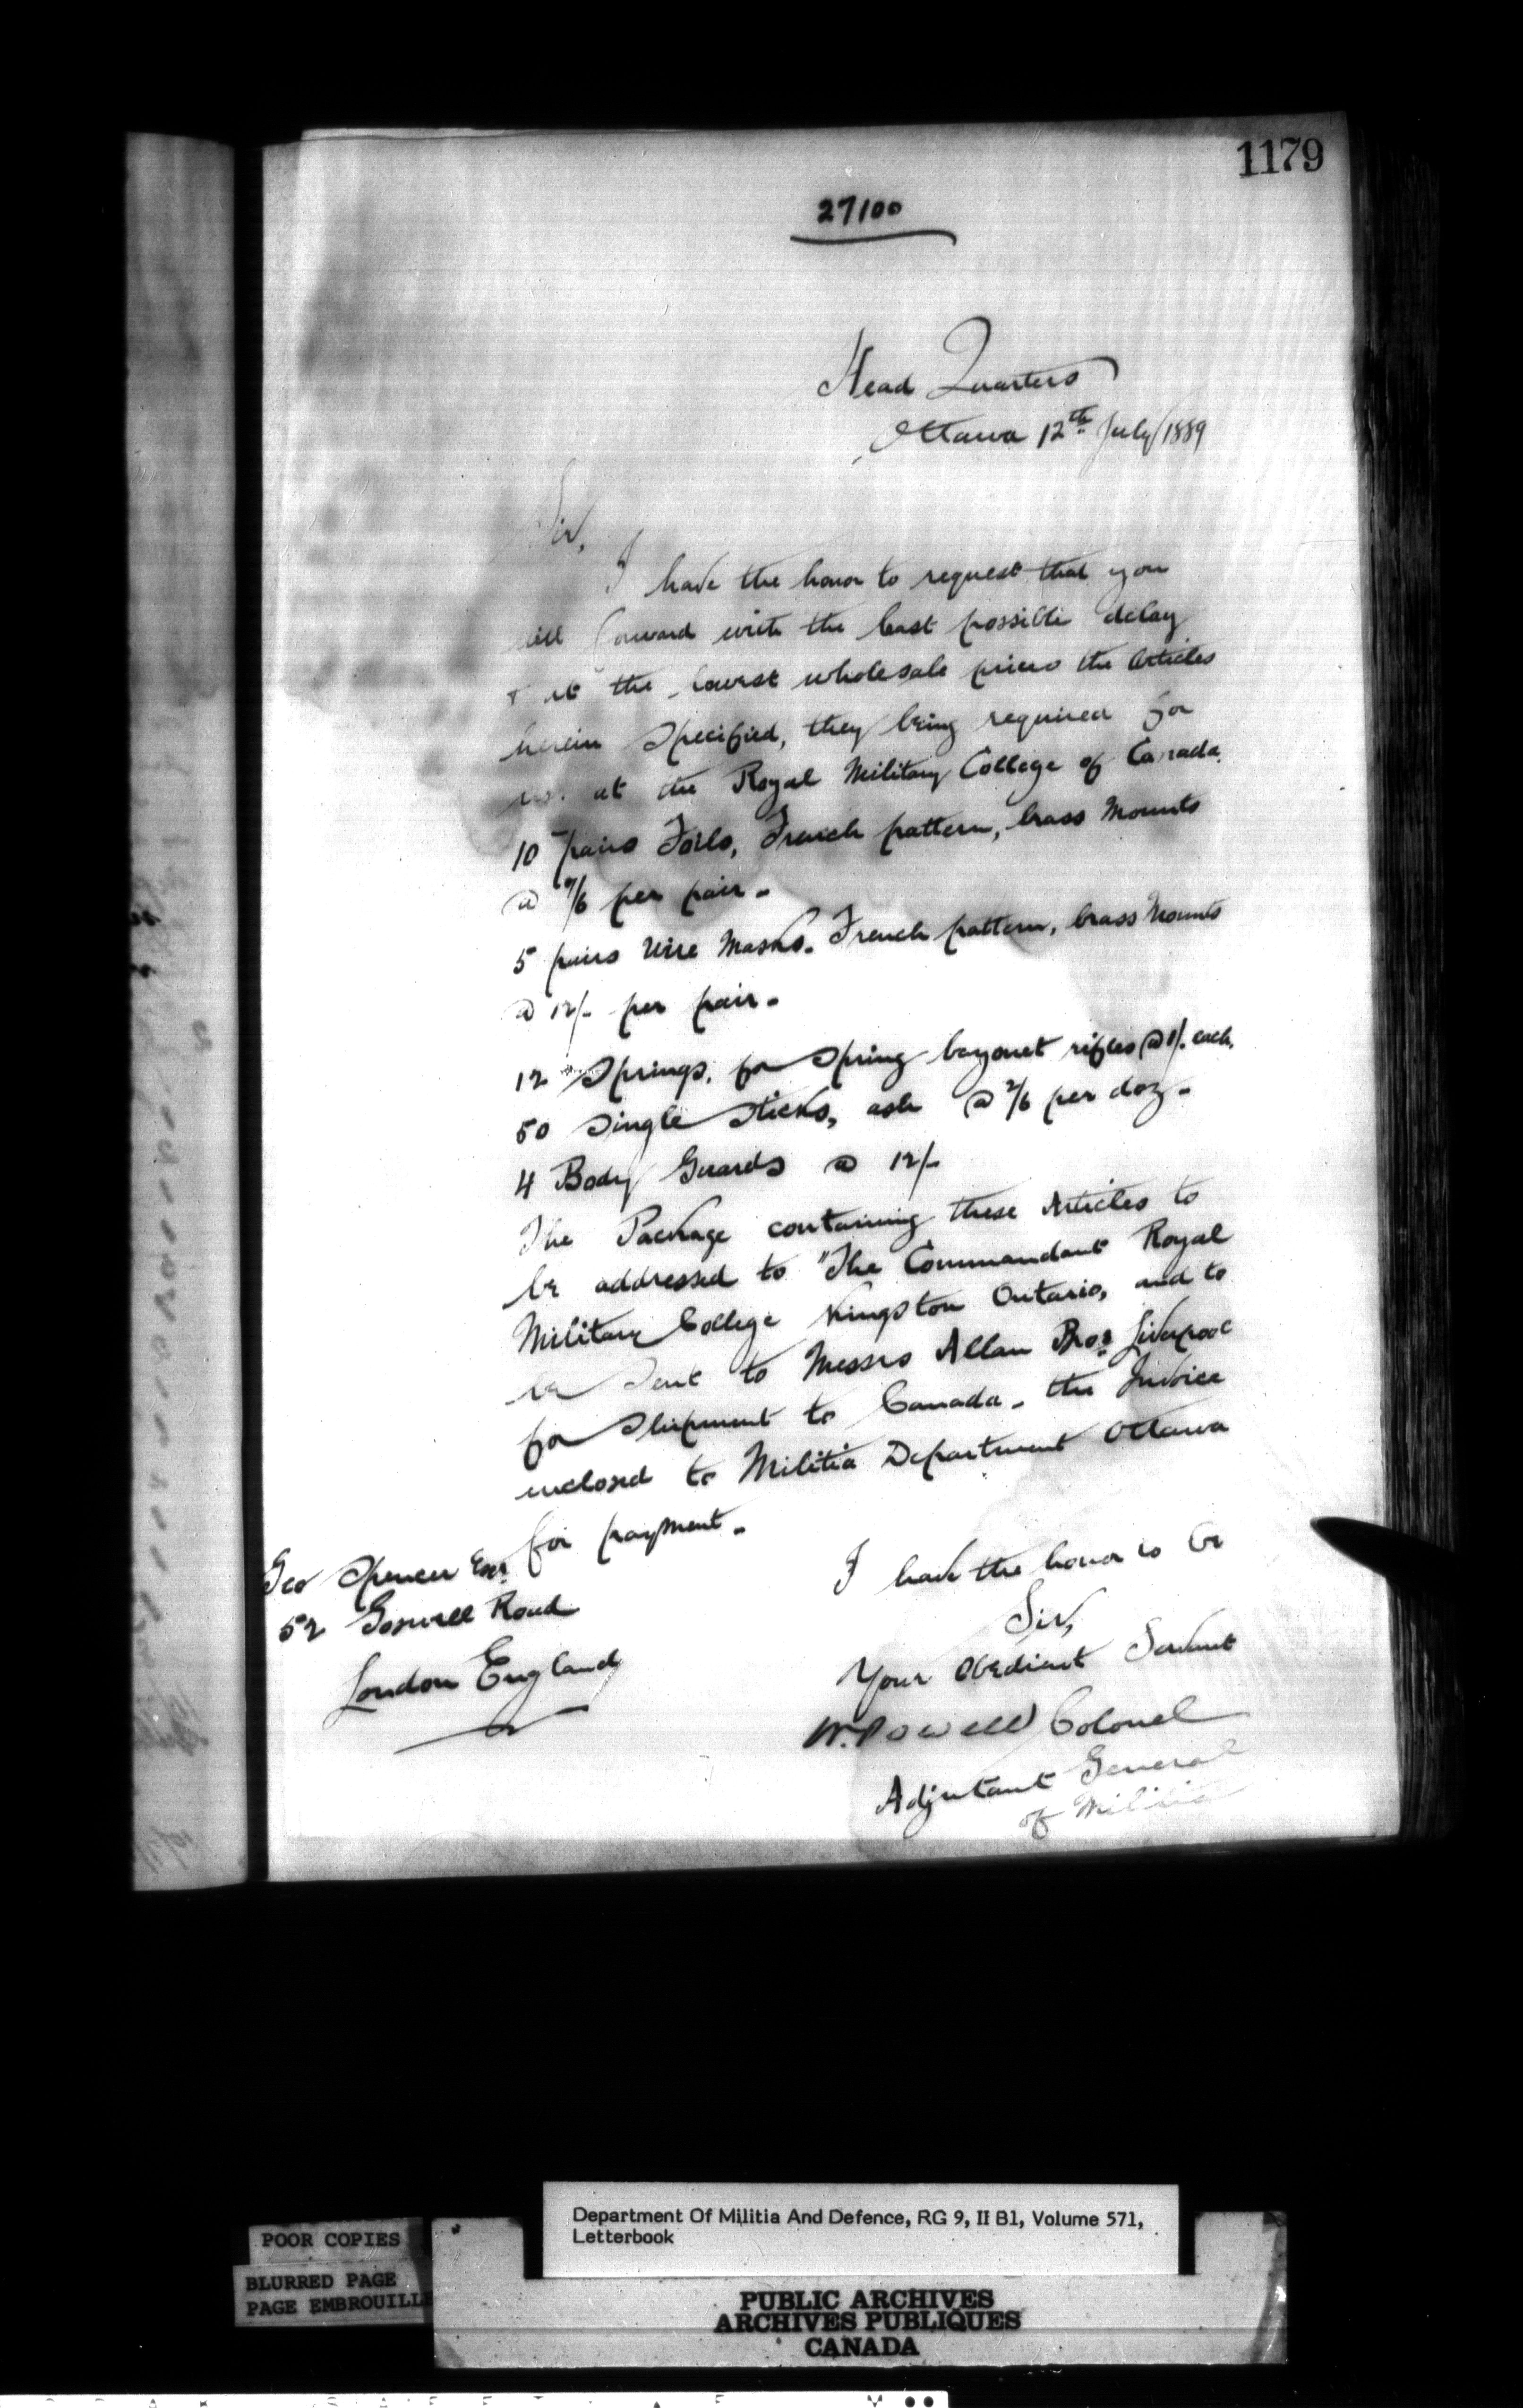 1179
27100
Head Quarters
Ottawa 12th July/1889
Sir,
I have the honor to request that you
will forward with the least possible delay
+ at the lowest wholesale prices the Articles
herein specified, they being required for
use at the Royal Military College of Canada.
10 pairs Foils, French pattern, brass Mounts
@ 7/6 per pair -
5 pairs Wire Masks. French pattern, brass Mounts
@ 12/- per pair -
12 Springs, for Spring bayonet rifles @ 1/. each.
50 Single Sticks, ash @ 2/6 per doz -
4 Body Guards @ 12/-
The Package containing these Articles to
be addressed to "The Commandant Royal
Military College Kingston Ontario, and to
be sent to Messrs Allan Bros Liverpool
for Shipment to Canada - the Invoice
enclosed to Militia Department Ottawa
for payment -
Geo Spencer Esqr
52 Goswell Road
London England
I have the honor to be
Sir,
Your Obedient Servant
W. Powell Colonel
Adjutant General
of Militia
Department Of Militia And Defence, RG 9, II B1, Volume 571,
Letterbook
POOR COPIES
BLURRED PAGE
PAGE EMBROUILLE
PUBLIC ARCHIVES
ARCHIVES PUBLIQUES
CANADA